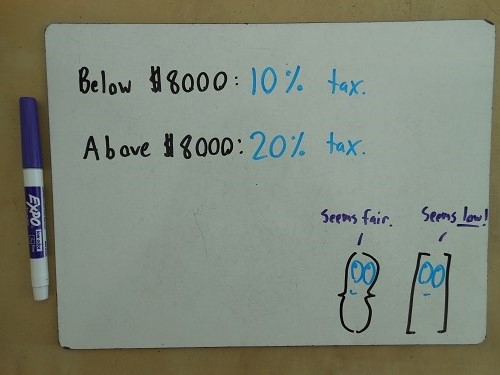 Below $8000: 10% tax.
Above $8000: 20% tax.
Seems fair.
Seems low!
EXPO